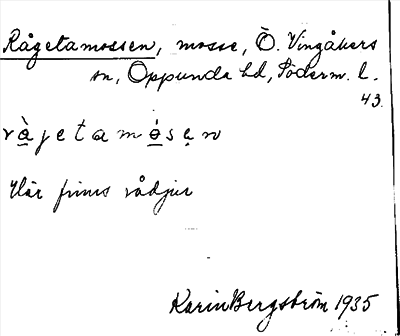 Rågetamossen, mosse, Ö. Vingåkers
sn, Oppunda hd, Söderm. l.
43.
rà̱jetamó̱sęn
Här finns rådjur
Karin Bergström 1935